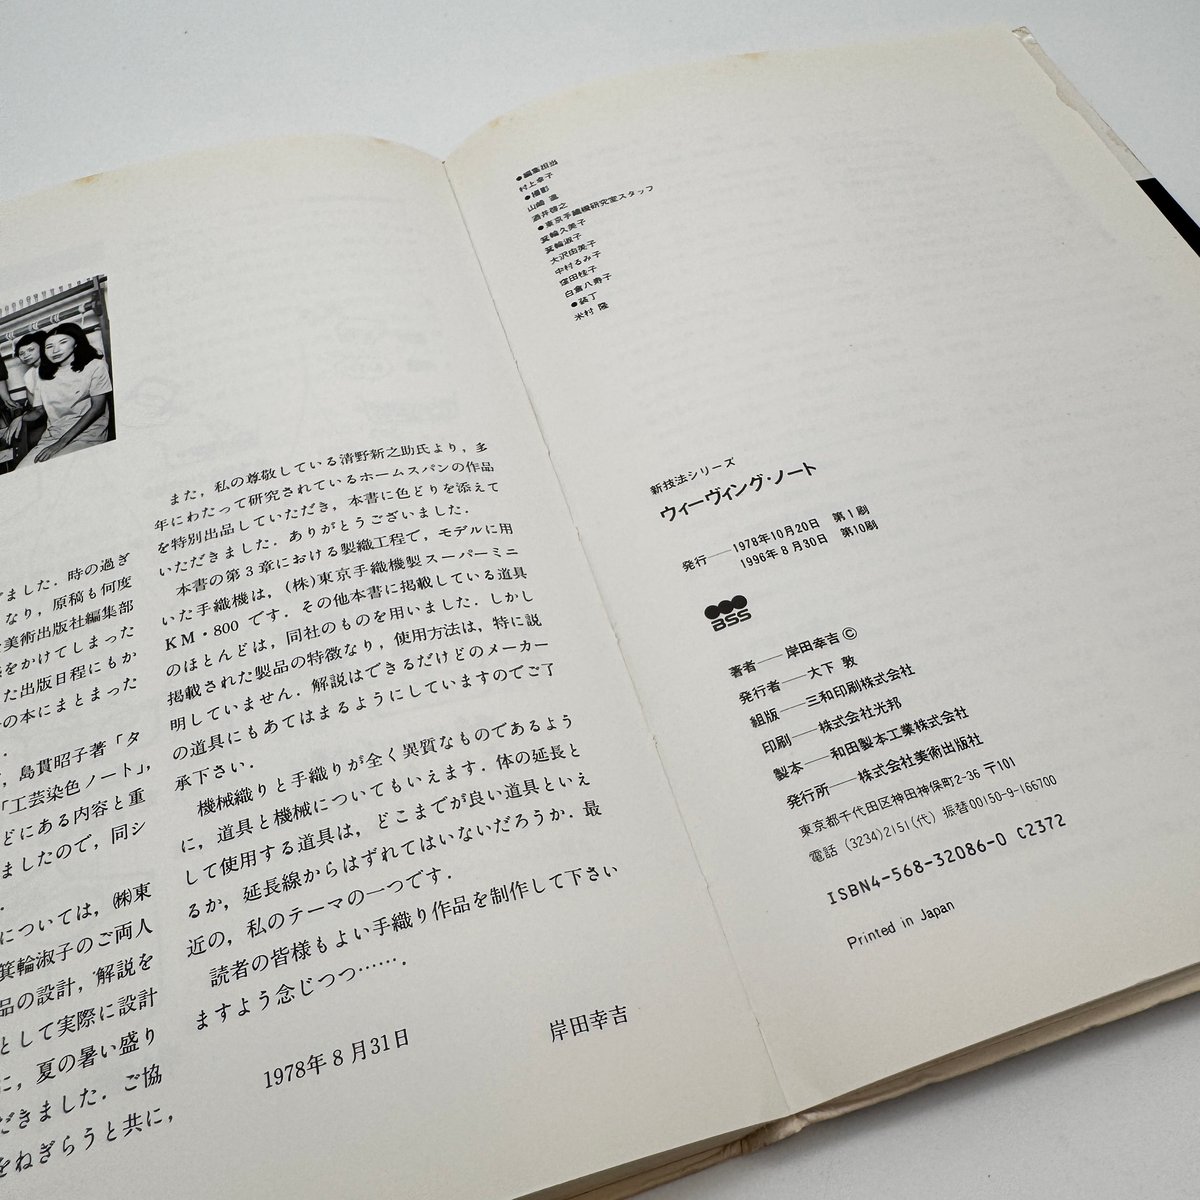 ぎました．時の過ぎ
なり，原稿も何度
美術出版社編集部
をかけてしまった
た出版日程にもか
の本にまとまった
．
，島貫昭子著「タ
「工芸染色ノート」，
どにある内容と重
ましたので，同シ
．
については，㈱東
箕輪淑子のご両人
品の設計，解説を
として実際に設計
に，夏の暑い盛り
だきました．ご協
をねぎらうと共に，
また，私の尊敬している清野新之助氏より，多
年にわたって研究されているホームスパンの作品
を特別出品していただき，本書に色どりを添えて
いただきました．ありがとうございました．
本書の第3章における製織工程で，モデルに用
いた手織機は，(株)東京手織機製スーパーミニ
KM・800です．その他本書に掲載している道具
のほとんどは，同社のものを用いました．しかし
掲載された製品の特徴なり，使用方法は，特に説
明していません．解説はできるだけどのメーカー
の道具にもあてはまるようにしていますのでご了
承下さい．
機械織りと手織りが全く異質なものであるよう
に，道具と機械についてもいえます．体の延長と
して使用する道具は，どこまでが良い道具といえ
るか，延長線からはずれてはいないだろうか．最
近の，私のテーマの一つです．
読者の皆様もよい手織り作品を制作して下さい
ますよう念じつつ……．
1978年8月31日 岸田幸吉
●編集担当
村上幸子
●撮影
山崎 進
酒井啓之
●東京手織機研究室スタッフ
箕輪久美子
箕輪淑子
大沢由美子
中村るみ子
窪田桂子
白倉八寿子
●装丁
米村 隆
新技法シリーズ
ウィーヴィング・ノート
発行──1978年10月20日 第1刷
1996年8月30日 第10刷
BSS
著者──岸田幸吉©
発行者──大下 敦
組版──三和印刷株式会社
印刷──株式会社光邦
製本──和田製本工業株式会社
発行所──株式会社美術出版社
東京都千代田区神田神保町2-36 〒101
電話 (3234)2151(代) 振替00150-9-166700
ISBN4-568-32086-0 C2372
Printed in Japan